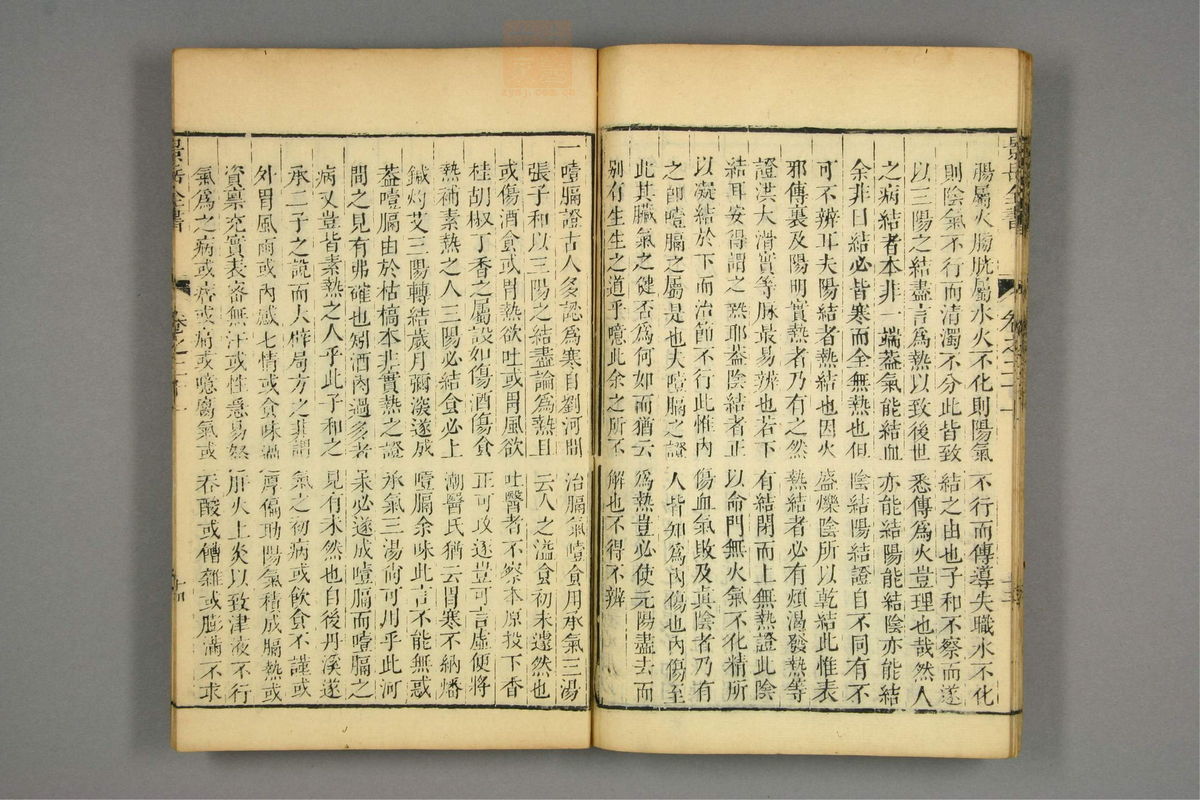 景岳全書
卷之二十一
腸屬火膀胱屬水火不化則陽氣不行而傳導失職水不化
則陰氣不行而清濁不分此皆致結之由也子和不察而遂
以三陽之結盡言爲熱以致後世悉傳爲火豈理也哉然人
之病結者本非一端葢氣能結血亦能結陽能結陰亦能結
余非曰結必皆寒而全無熱也但陰結陽結證自不同有不
可不辨耳夫陽結者熱結也因火盛爍陰所以乾結此惟表
邪傳裏及陽明實熱者乃有之然熱結者必有煩渴發熱等
證洪大滑實等脉最易辨也若下有結閉而上無熱證此陰
結耳安得謂之熱耶葢陰結者正以命門無火氣不化精所
以凝結於下而治節不行此惟內傷血氣敗及真陰者乃有
之卽噎膈之屬是也夫噎膈之證人皆知爲內傷也內傷至
此其臟氣之健否爲何如而猶云爲熱豈必使元陽盡去而
別有生生之道乎噫此余之所不解也不得不辨
一噎膈證古人多認爲寒自劉河間治膈氣噎食用承氣三湯
張子和以三陽之結盡論爲熱且云人之溢食初未遽然也
或傷酒食或胃熱欲吐或胃風欲吐醫者不察本原投下香
桂胡椒丁香之屬設如傷酒傷食正可攻逐豈可言虛便將
熱補素熱之人三陽必結食必上潮醫氏猶云胃寒不納燔
鍼灼艾三陽轉結歲月彌深遂成噎膈余味此言不能無惑
葢噎膈由於枯槁本非實熱之證承氣三湯尚可用乎此河
間之見有弗確也矧酒肉過多者未必遂成噎膈而噎膈之
病又豈皆素熱之人乎此子和之見有未然也自後丹溪遂
承二子之說而大辟局方之非謂氣之初病或飲食不謹或
外胃風雨或內感七情或食味過厚偏助陽氣積成膈熱或
資禀充實表密無汗或性急易怒肝火上炎以致津液不行
氣爲之病或痞或痛或噫腐氣或吞酸或嘈雜或膨滿不求
景岳全書